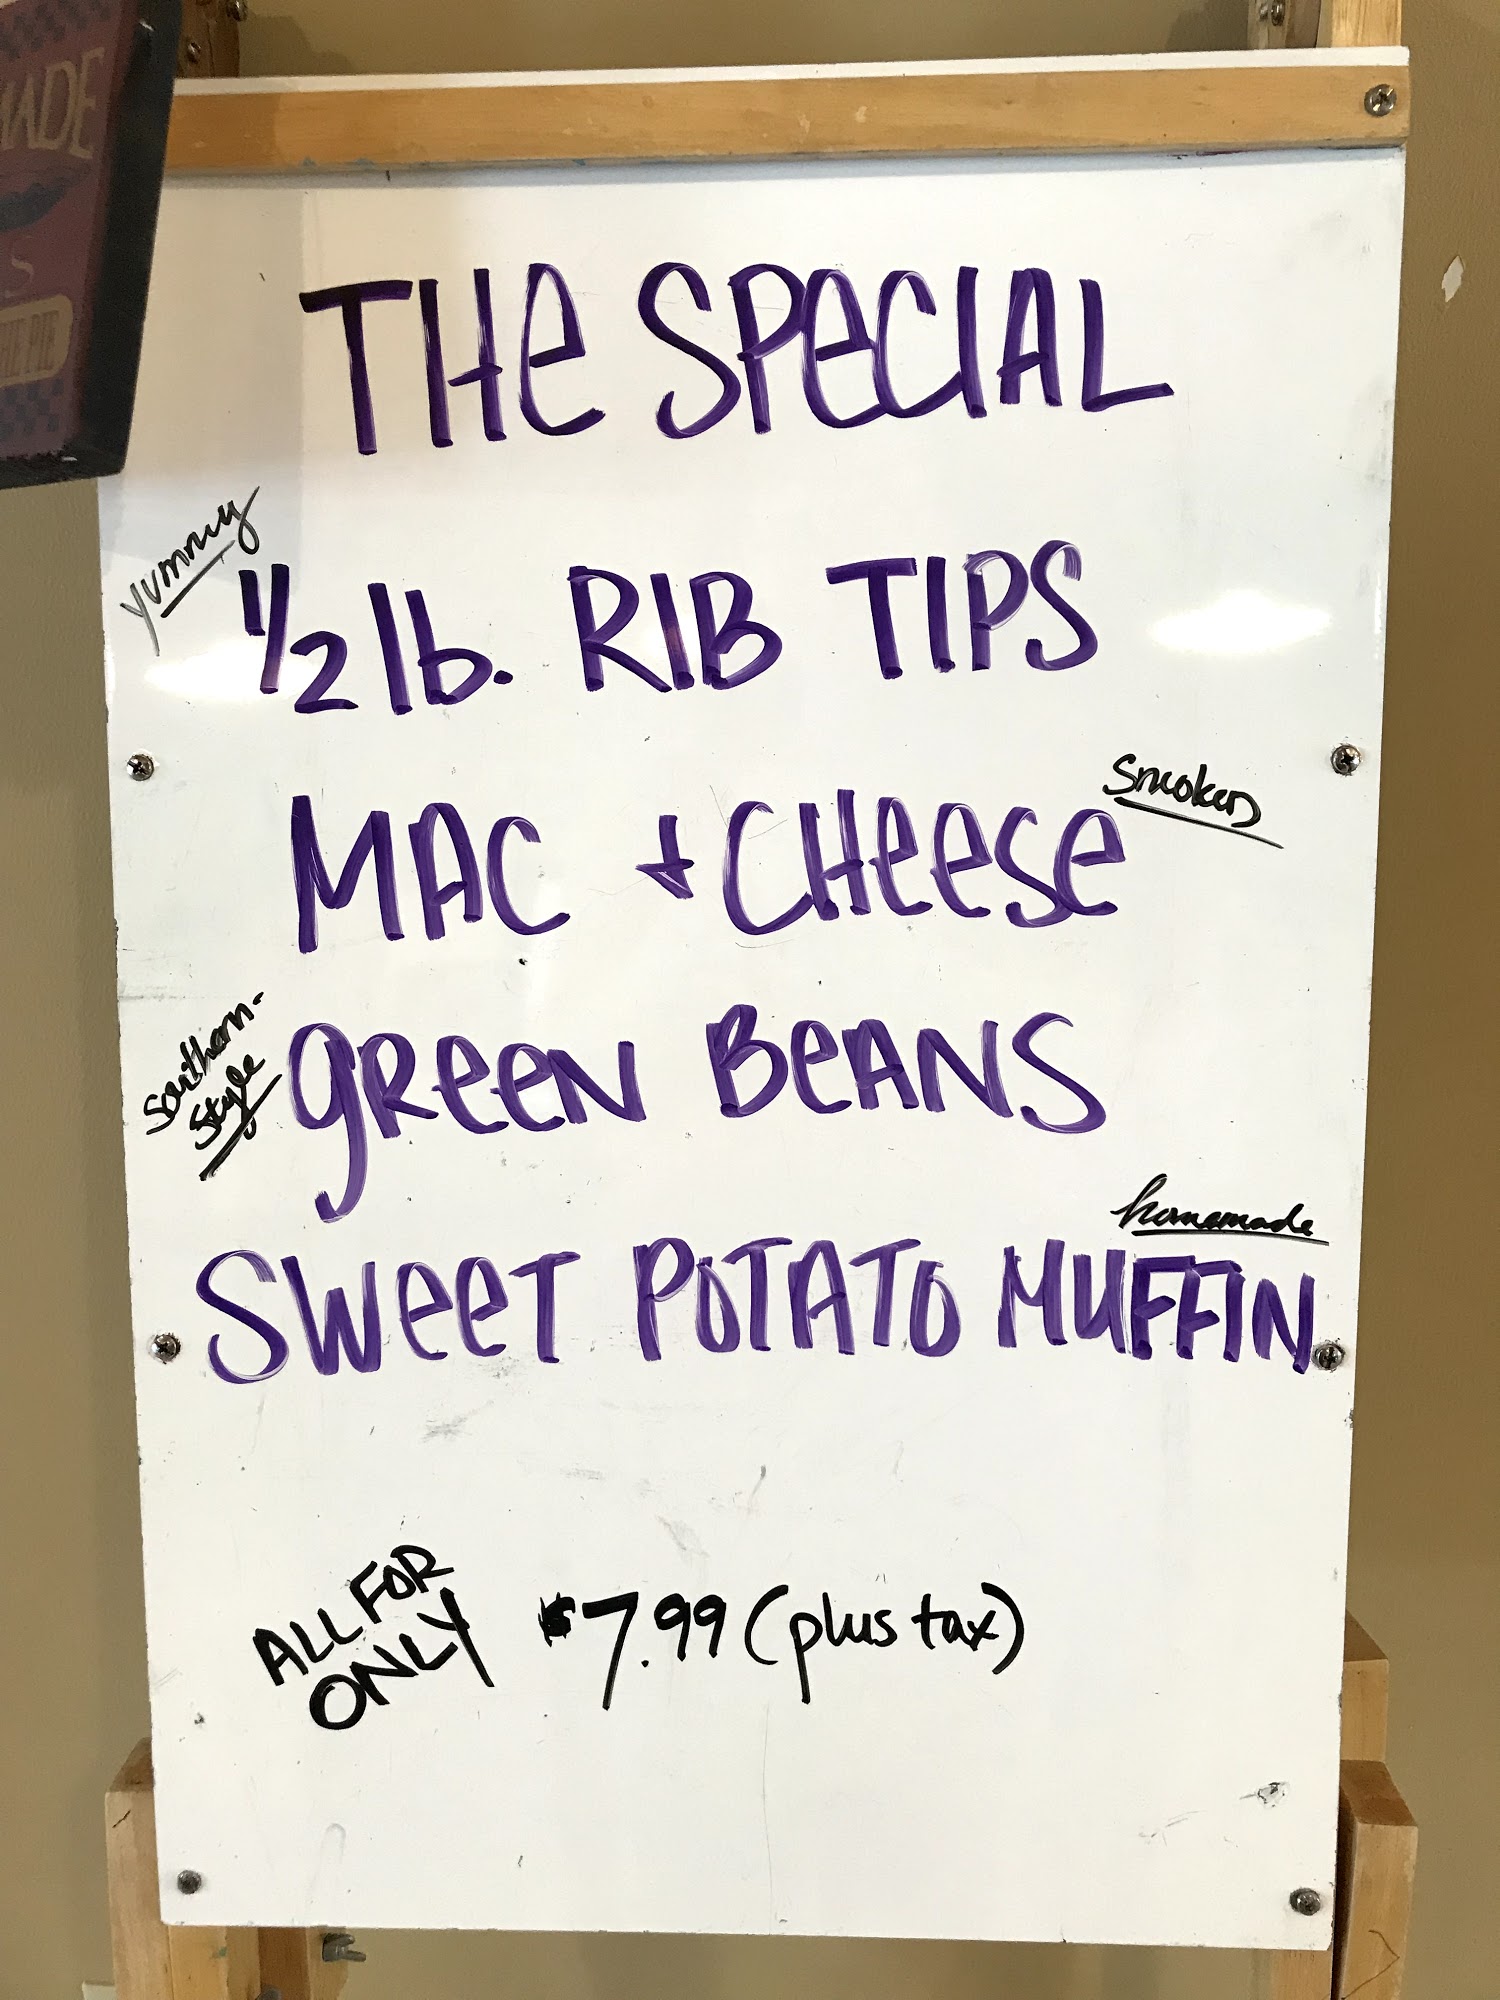 MADE
S
THE PIE
THE SPECIAL
yummy
1/2 lb. RIB TIPS
MAC + CHEESE
GREEN BEANS
Southern-
Style
homemade
SWEET POTATO MUFFIN
ALL FOR
ONLY
$7.99 (plus tax)